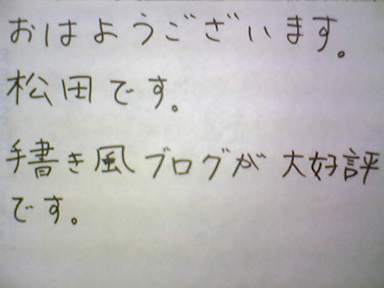 おはようございます。
松田です。
手書き風ブログが大好評
です。